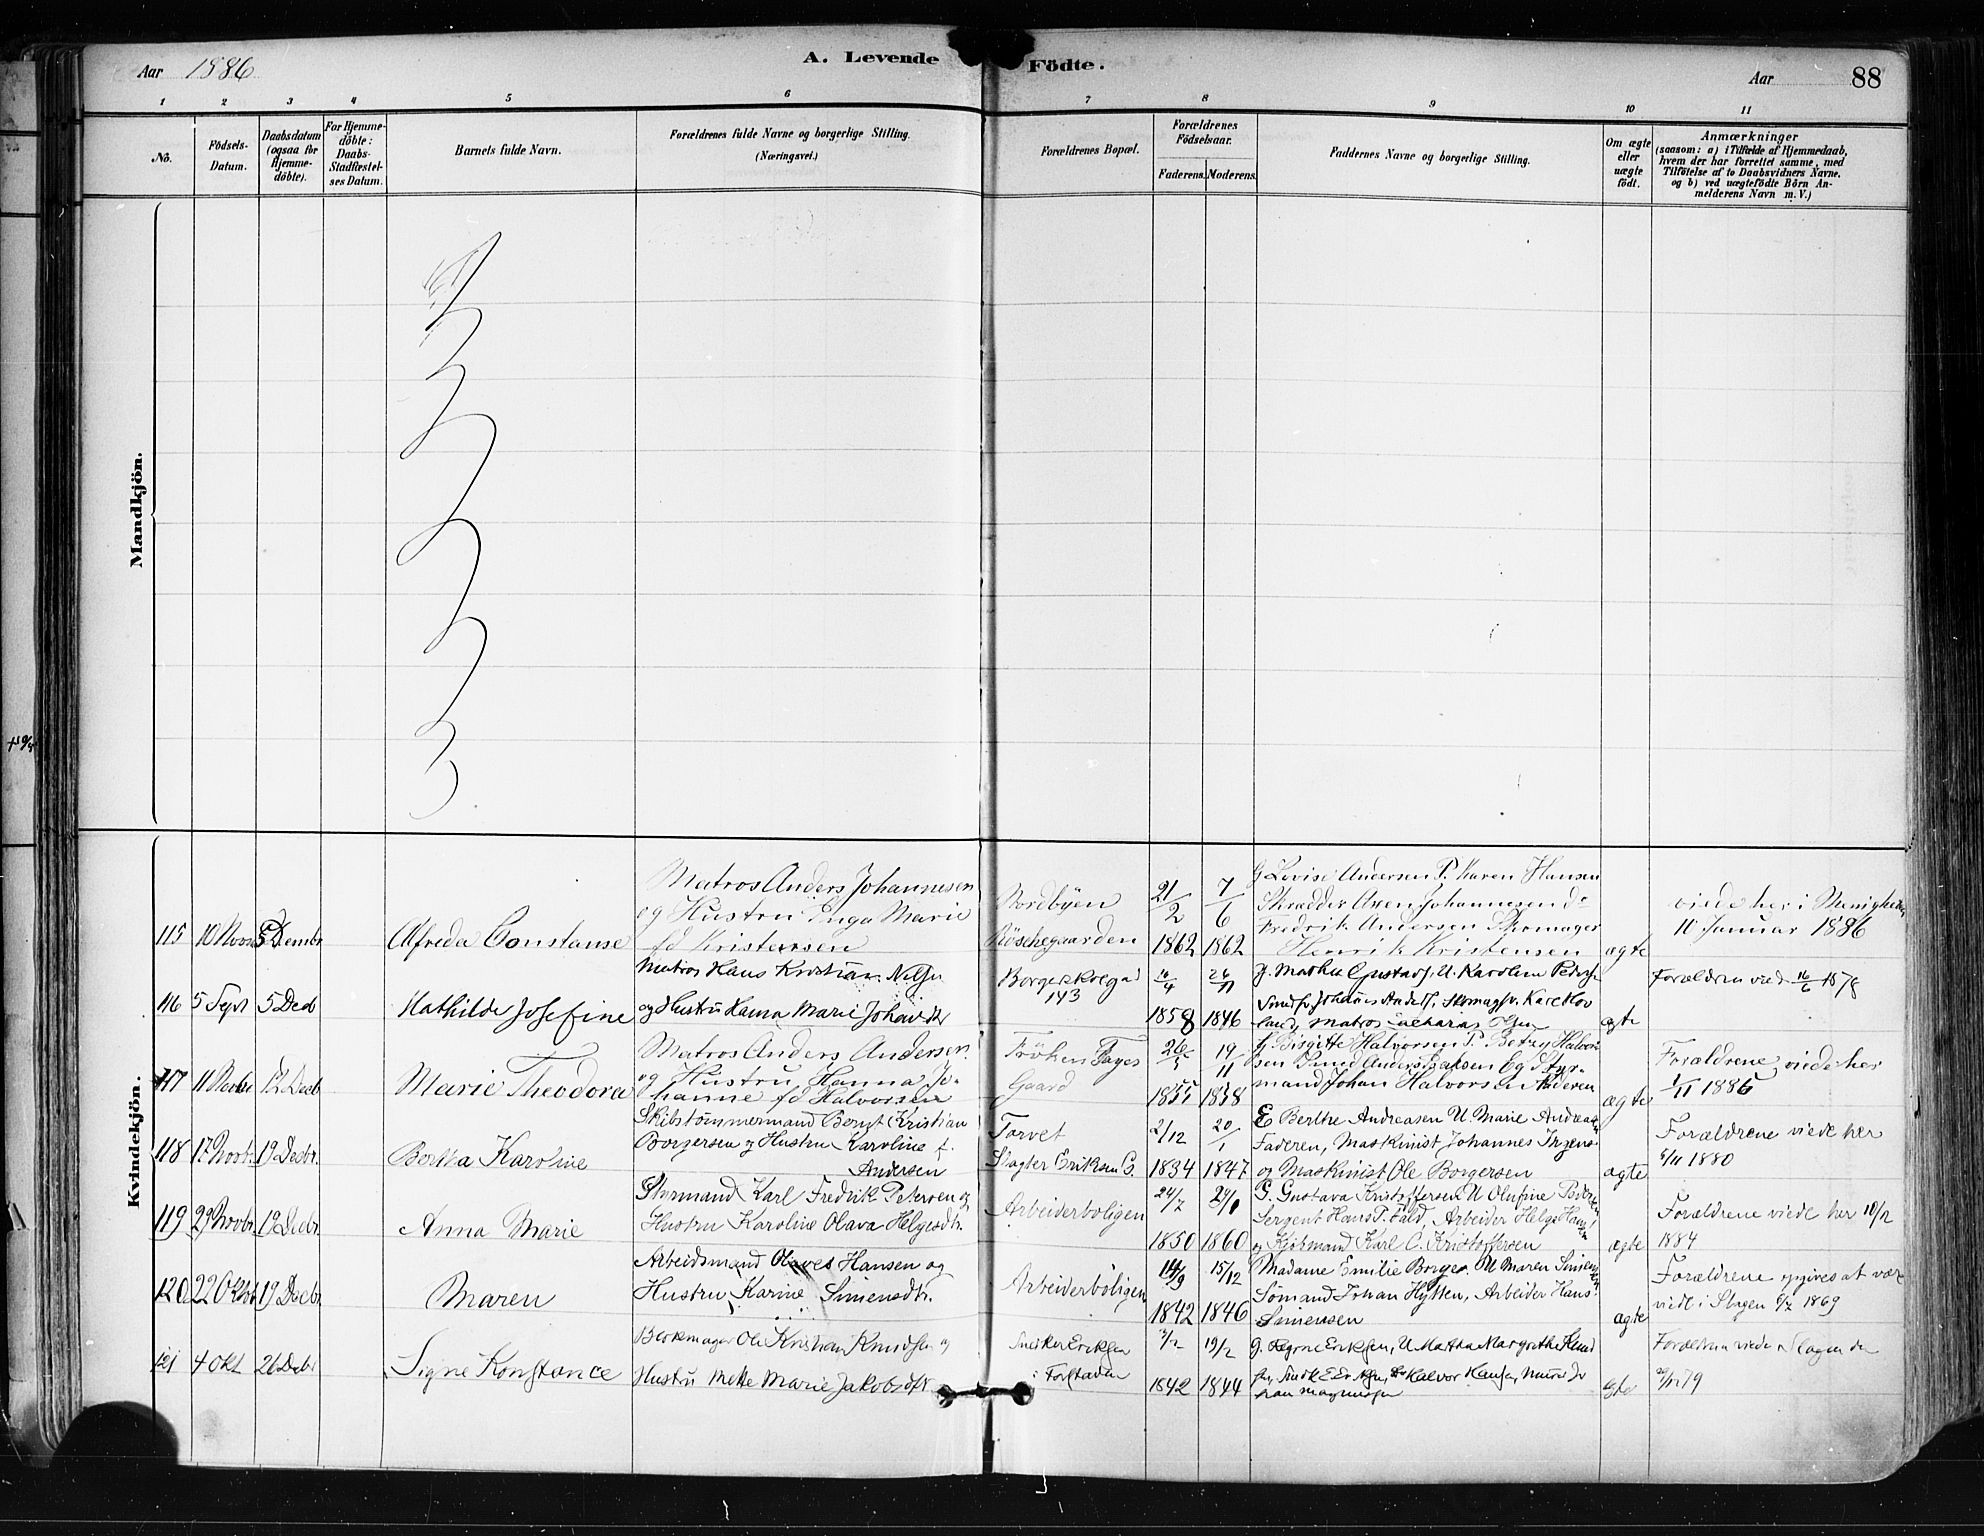 Aar 1886
A. Levende Födte.
Aar
88
1 2 3 4 5 6 7 8 9 10 11
No.
Födsels-
Datum.
Daabsdatum
(ogsaa for
Hjemme-
döbte).
For Hjemme-
döbte:
Daabs-
Stadfæstel-
ses Datum.
Barnets fulde Navn.
Forældrenes fulde Navne og borgerlige Stilling.
(Næringsvei.)
Forældrenes Bopæl.
Forældrenes
Födselsaar.
Faderens. Moderens.
Faddernes Navne og borgerlige Stilling.
Om ægte
eller
uægte
födt.
Anmærkninger
(saasom: a) i Tilfælde af Hjemmedaab,
hvem der har forrettet samme, med
Tilföielse af to Daabsvidners Navne.
og b) ved uægtefödte Börn An-
melderens Navn m. V.)
Mandkjön.
Kvindekjön.
115 10 Novr 5 Decembr
Alfreda Constanse
Matros Anders Johannesen
og Hustru Inga Marie
fd Kristensen
Nordbyen
Röschegaarden
21/2 1862
7/6 1862
G Lovise Andersen P. Karen Hansen
Skrædder Johannesen
Fredrik Andersen Skomager
Henrik Kristensen
ægte
viede her i Menigheden
10 Januar 1886
116 5 Sept 5 Decb
Mathilde Josefine
Matros Hans Kristian
og Hustru Hanna Marie
Borgerskolegd
143
1858
26/11 1846
ægte
Forældren viede 16/6 1878
117 11 Novbr 12 Decb
Marie Theodora
Matros Anders Andersen
og Hustru Hanna Jo-
hanne fd Halvorsen
Fröken Fayes
Gaard
26/5 1855
19/11 1838
J. Birgitte Halvorsen P. Betzy Halvor
sen Smed Anders og Styr-
mand Johan Halvorsen
ægte
Forældrene viede her
1/11 1885
118 17 Novb. 19 Decbr.
Bertha Karoline
Skibstömmermand Bernt Kristian
Borgersen og Hustru Karoline f.
Andersen
Torvet
Slagter Eriksen G.
2/12 1834
20/1 1847
E Berthe Andreasen U Marie Andreas
Faderen, Maskinist Johannes
og Maskinist Ole Borgersen
ægte
Forældrene viede her
1880
119 29 Novbr. 19 Decbr.
Anna Marie
Styrmand Karl Fredrik Petersen og
Hustru Karoline Olava Helgesdtr.
Arbeiderboligen
24/7 1850
1860
G. Gustava Kristoffersen U Olufine
Sergent Hans P. Fald, Arbeider Helge
og Kjöbmand Karl C. Kristoffersen
ægte
Forældrene viede her 10/2
1884
120 22 Oktbr 19 Decbr
Maren
Arbeidsmand Olaves Hansen og
Hustru Karine Simensdtr.
Arbeiderboligen
14/9 1842
15/12 1846
Madame Emilie Borge. U Maren Simen
Sömand Johan Hytten, Arbeider Hans
Simensen
ægte
Forældrene opgives at være
viede i Slagen 1869
121 4 Okt 26 Debr
Signe Konstance
Ole Kristian Knudsen og
Hustru Mette Marie Jakobsdtr
Snedker Eriksen
i Forstaden
1842
19/2 1844
Halvor Hansen,
Forældren viede i Slagen den
79